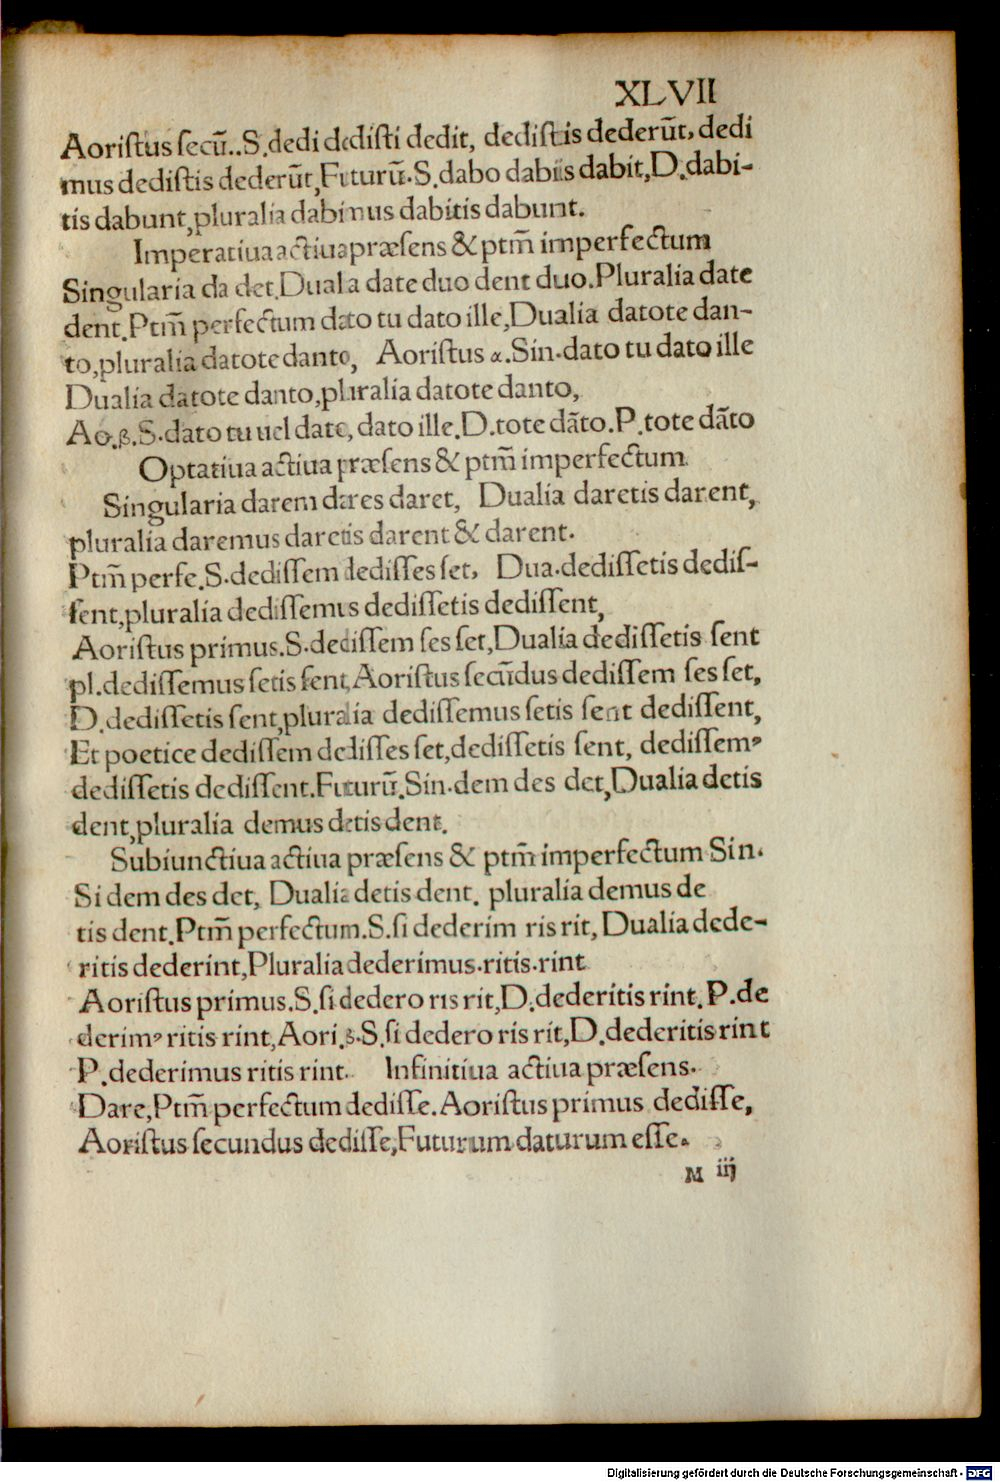 XLVII
Aoriſtus ſecū..S.dedi dediſti dedit, dediſtis dederūt, dedi
mus dediſtis dederūt, Futurū.S.dabo dabis dabit, D.dabi-
tis dabunt, pluralia dabimus dabitis dabunt.
Imperatiua actiua præſens & ptm̄ imperfectum
Singularia da det. Dualia date duo dent duo. Pluralia date
dent. Ptm̄ perfectum dato tu dato ille, Dualia datote dan-
to, pluralia datote danto, Aoriſtus α. Sin. dato tu dato ille
Dualia datote danto, pluralia datote danto,
Ao.β.S.dato tu uel dato, dato ille. D.tote dāto. P.tote dāto
Optatiua actiua præſens & ptm̄ imperfectum
Singularia darem dares daret, Dualia daretis darent,
pluralia daremus daretis darent & darent.
Ptm̄ perfe.S.dediſſem dediſſes ſet, Dua.dediſſetis dediſ-
ſent, pluralia dediſſemus dediſſetis dediſſent,
Aoriſtus primus.S.dediſſem ſes ſet, Dualia dediſſetis ſent
pl.dediſſemus ſetis ſent, Aoriſtus ſecūdus dediſſem ſes ſet,
D.dediſſetis ſent, pluralia dediſſemus ſetis ſent dediſſent,
Et poetice dediſſem dediſſes ſet, dediſſetis ſent, dediſſemꝰ
dediſſetis dediſſent. Futurū. Sin. dem des det, Dualia detis
dent, pluralia demus detis dent.
Subiunctiua actiua præſens & ptm̄ imperfectum Sin.
Si dem des det, Dualia detis dent. pluralia demus de
tis dent. Ptm̄ perfectum.S.ſi dederim ris rit, Dualia dede-
ritis dederint, Pluralia dederimus.ritis.rint
Aoriſtus primus.S.ſi dedero ris rit, D.dederitis rint. P.de
derimꝰ ritis rint, Aori.β.S.ſi dedero ris rit, D.dederitis rint
P.dederimus ritis rint. Infinitiua actiua præſens.
Dare, Ptm̄ perfectum dediſſe. Aoriſtus primus dediſſe,
Aoriſtus ſecundus dediſſe, Futurum daturum eſſe.
M iij
Digitalisierung gefördert durch die Deutsche Forschungsgemeinschaft - DFG